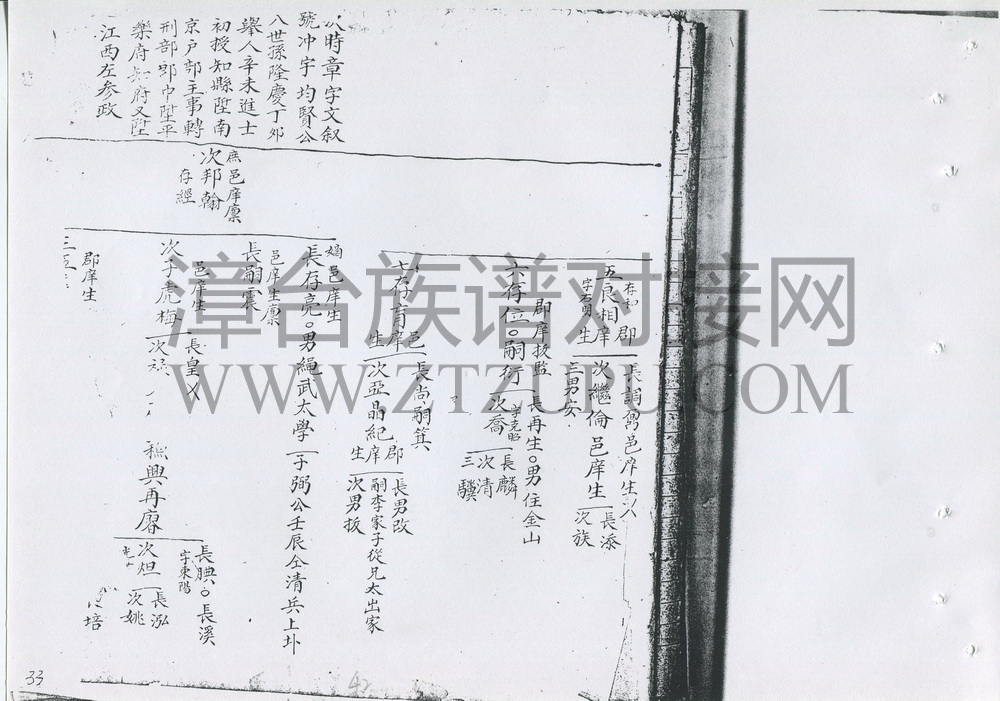 時章字文叙
號冲宇均賢公
八世孫隆慶丁夘
舉人辛未進士
初授知縣陞南
京户部主事轉
刑部郎中陞平
樂府知府又陞
江西左参政
庶邑庠廪
次邦翰
存經
五良相
郡庠生
長調弼邑庠生
次繼倫邑庠生
三男安
長添
次族
郡庠抜監
六存位。嗣衍
長再生。男住金山
次喬
字克昭
長麟
次清
三驥
七存育
邑庠生
長尚嗣箕
次亞嗣紀
郡庠生
長男改
嗣李家子從兄太出家
次男扳
嫡邑庠生
長存亮。男繩武太學
子弼公壬辰仝清兵上圤
邑庠生廪
長嗣震
邑庠生
次子虎梅
長皇
次
郡庠生
興再廖
長腆。長溪
字東陽
次烜
長泓
次姚
培
33
漳台族谱对接网
WWW.ZTZUPU.COM